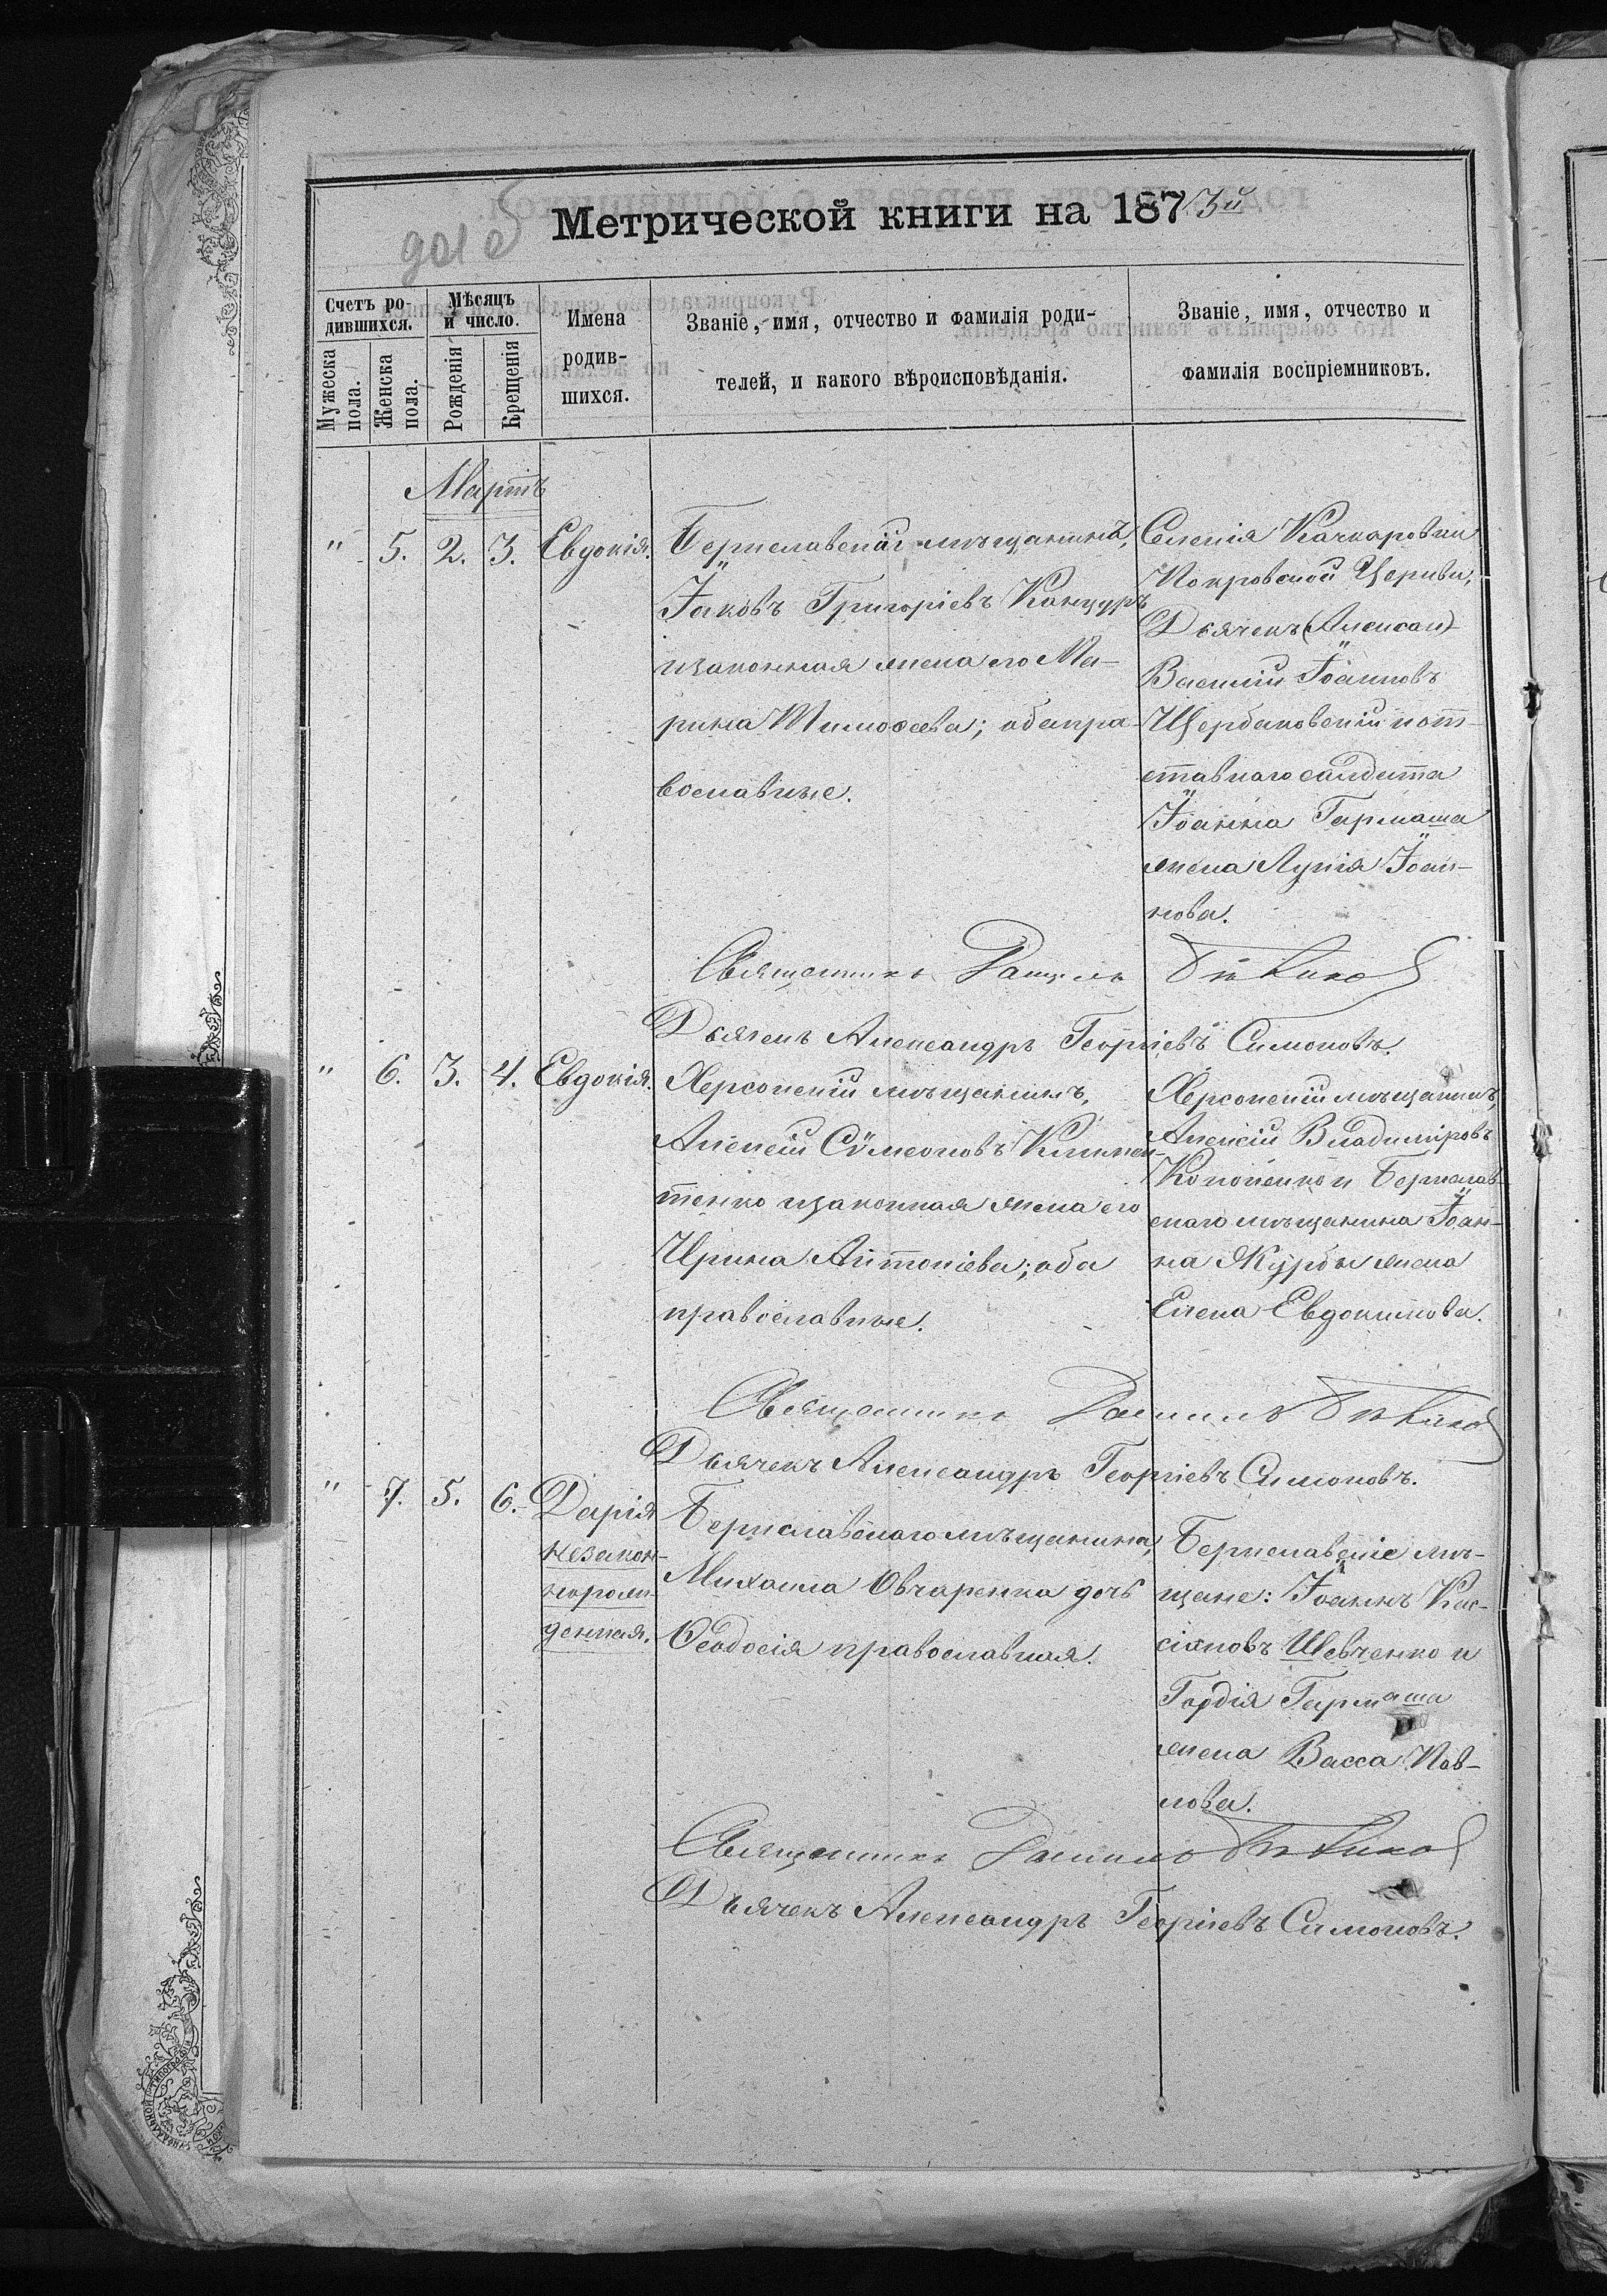 Метрической книги на 1873й
Счетъ ро-
дившихся.
Мужеска
пола.
Женска
пола.
Мѣсяцъ
и число.
Рожденія
Крещенія
Имена
родив-
шихся.
Званіе, имя, отчество и фамилія роди-
телей, и какого вѣроисповѣданія.
Званіе, имя, отчество и
фамилія воспріемниковъ.
Мартъ
" 5. 2. 3. Евдокія.
Бериславскій мѣщанинъ,
Іаковъ Григоріевъ Канцуръ
и законная жена его Ма-
рина Тимоѳеева; оба пра-
вославные.
Селенія Качкаровки
Покровской Церкви,
Дьячекъ (Алексан)
Василій Іоанновъ
Щербаковскій и от-
ставнаго солдата
Іоанна Гармаша
жена Лукія Іоан-
нова.
Священникъ Даніилъ
Дьячекъ Александръ Георгіевъ Симоновъ.
" 6. 3. 4. Евдокія.
Херсонскій мѣщанинъ,
Алексій Сѵмеоновъ Климен-
тенко и законная жена его
Ирина Антоніева; оба
православные.
Херсонскій мѣщанинъ,
Алексій Владиміровъ
Кононенко и Берислав-
скаго мѣщанина Іоан-
на Журбы жена
Елена Евдокимова.
Священникъ Даніилъ
Дьячекъ Александръ Георгіевъ Симоновъ.
" 7. 5. 6. Дарія
незакон-
норож-
денная.
Бериславскаго мѣщанина,
Михаила Овчаренка дочь
Ѳеодосія православная.
Бериславскіе мѣ-
щане: Іоаннъ Кас-
сіановъ Шевченко и
Гордія Гармаша
жена Васса Пав-
лова.
Священникъ Даніилъ
Дьячекъ Александръ Георгіевъ Симоновъ.